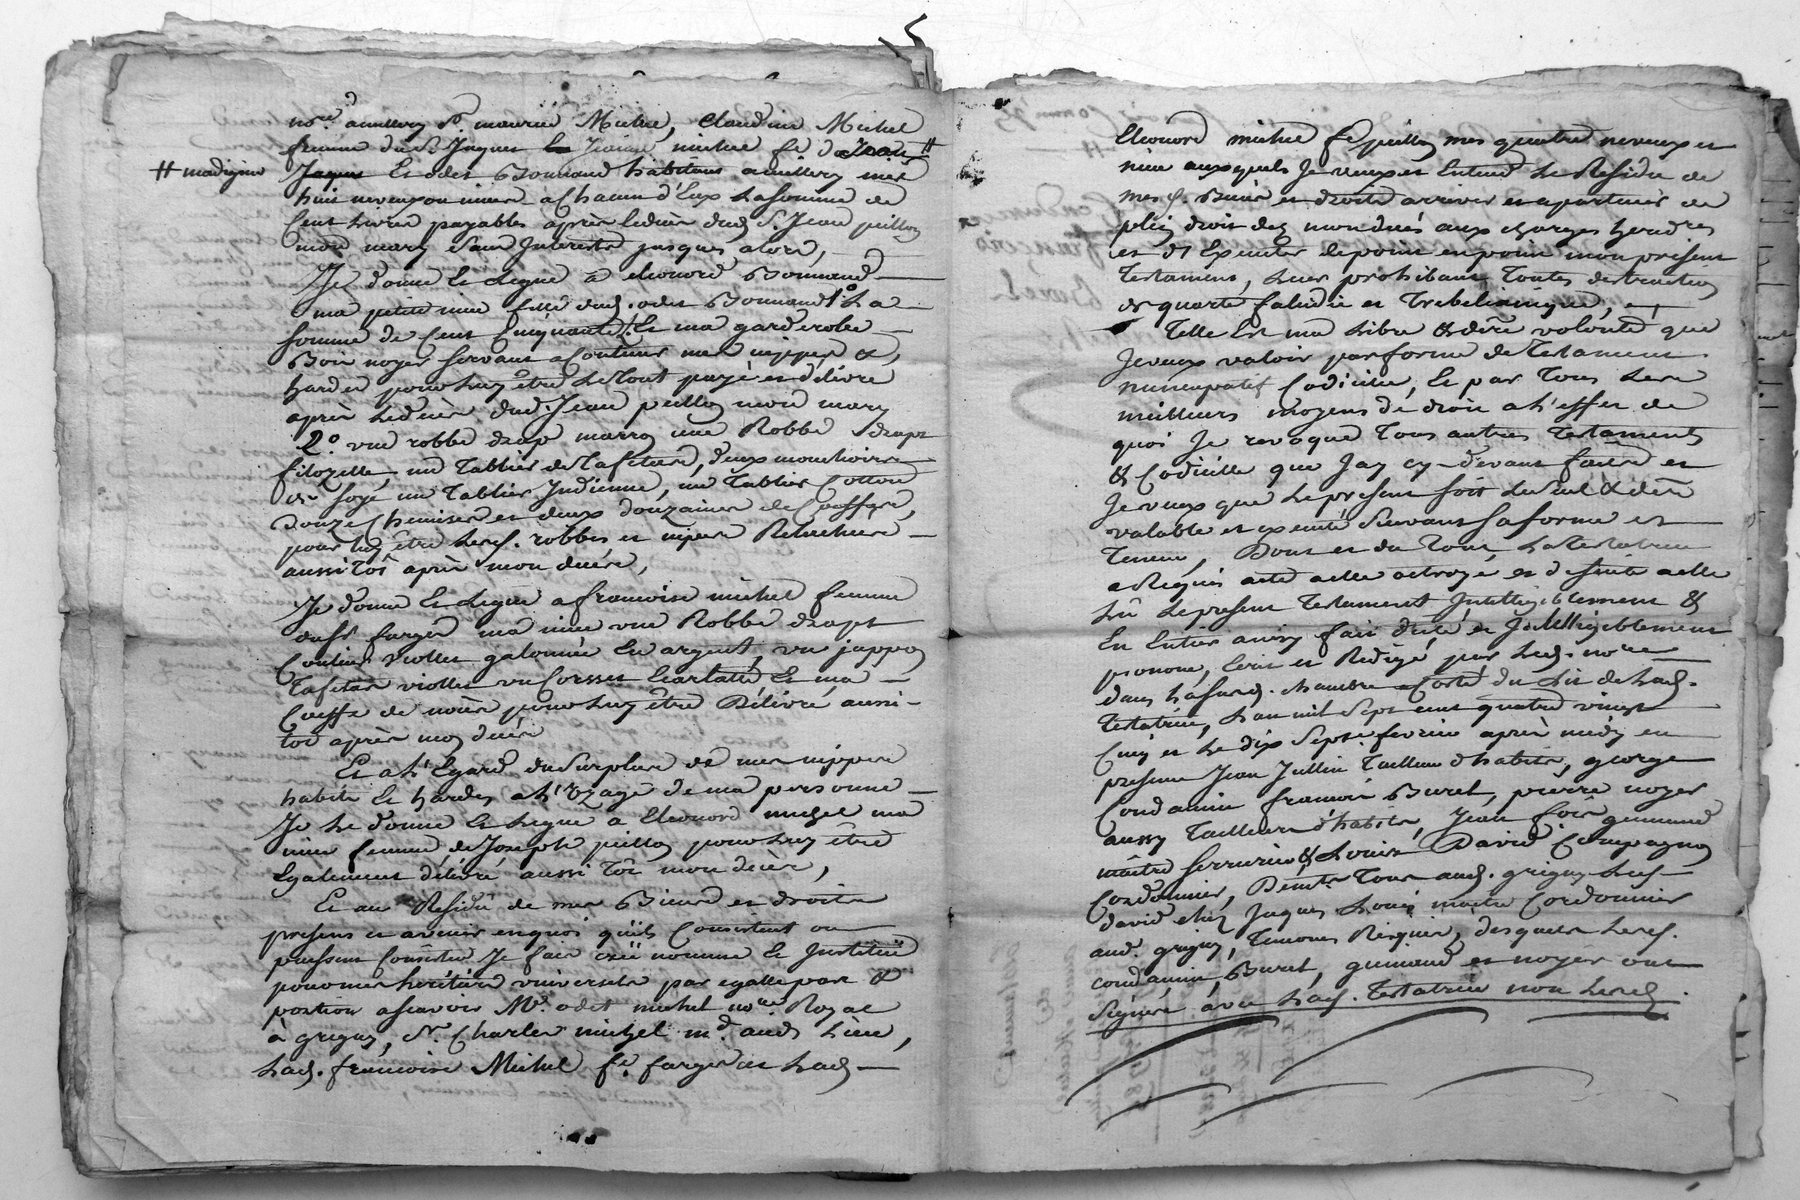 nore. amillery Sr. maurice Michel, Claudine Michel
femme du Sr. Jaques michel fe. de Jean #
# madignier
Jaques Et odet Bonnand habitans amillery mes
huit neveux ou nieces a Chacun d'Eux La somme de
Cent Livres payables après Le décès dud. S. Jean peillon
mon mary sans Interests jusques alors,
Je donne Et Legue à eleonord Bonnand
ma petite niece fille dud. odet Bonnand 1o. La
somme de Cent Cinquante L. Et ma garderobe
Bois noyer servant a Contenir mes nippes &
hardes pour Luy être Le Tout payé et délivré
après Le décès dud. Jean peillon mon mary
2o. une robbe drap marron une Robbe drapt
filozelle, un Tablier de Tafetas, deux mouchoirs
de soye un Tablier Indienne, un Tablier Cotton
Douze Chemises et deux douzaines de Coeffes,
pour luy être Lesd. robbes et nipes Relachées
aussi Tôt après mon décès,
Je donne Et Legue a francoise michel femme
du Sr. farges ma niece une Robbe drapt
Couleur violet galonnée En argent, un juppon
Tafetas violet un Corsset Ecarlatte Et ma
Coeffe de noces pour Luy être Délivré aussi-
tot après mon décès
Et a L'Egard du Surplus de mes nippes
habits Et hardes a L'Uzage de ma personne
Je Le donne Et Legue a Eleonord michel ma
niece femme de Joseph peillon pour Luy etre
Egalement délivré aussi Tôt mon décès,
Et au Résidu de mes Biens et droits
presens et avenir en quoi qu'ils Consistent ou
puissent Consister Je fais crée nomme Et Institue
pour mes heritiers universels par egalle part &
portion a scavoir Me. odet michel nore Royal
à grigny, Sr. Charles michel md. aud. Lieu,
Lad. francoise Michel fe. farges et Lad.
Eleonord michel fe. peillon mes quatre neveux et
niece auxquels Je veux et Entend Le Residu de
mesd. Biens et droits arriver et apartenir de
plein droit dez mon décès aux charges hered.res
et d'Executer de point en point mon présent
Testament, Leur prohibant Toutes distraction
de quarte falcidie et Trebelianique,
Telle Est ma Libre & dère volonté, que
Je veux valoir par forme de Testament
nuncupatif Codicille, Et par Tous Les
meilleurs moyens de droit a L'effet de
quoi Je revoque Tous autres Testaments
& Codicille que Jay cy-devant faits et
Je veux que Le present soit Le seul & dère
valable et executé Suivant Sa forme et
Teneur, Dont et du Tout La Testatrice
a Requis acte a elle octroyé et de suite a elle
Lû Le present Testament Intelligiblement &
En Entier ainsy fait dicté et Intelligiblement
prononcé, Ecrit et Redigé par Led. nore
dans La susd. chambre a Costé du Lit de Lad.
Testatrice, L'an mil Sept cent quatre vingt
Cinq et Le dix Sept fevrier après midy en
presence Jean Jullin Tailleur d'habits, george
Condamin francois Buret, pierre noyer
aussy Tailleurs d'habits, Jean fois guimaud
maître Serrurier & Louis David Compagnon
Cordonnier, Demts. Tous aud. grigny Led.
david chez Jaques Louis maitre Cordonnier
aud. grigny, Temoins Requis, desquels Lesd.
condamin, Buret, guimaud et noyer ont
Signés avec Lad. Testatrice non Lesd.